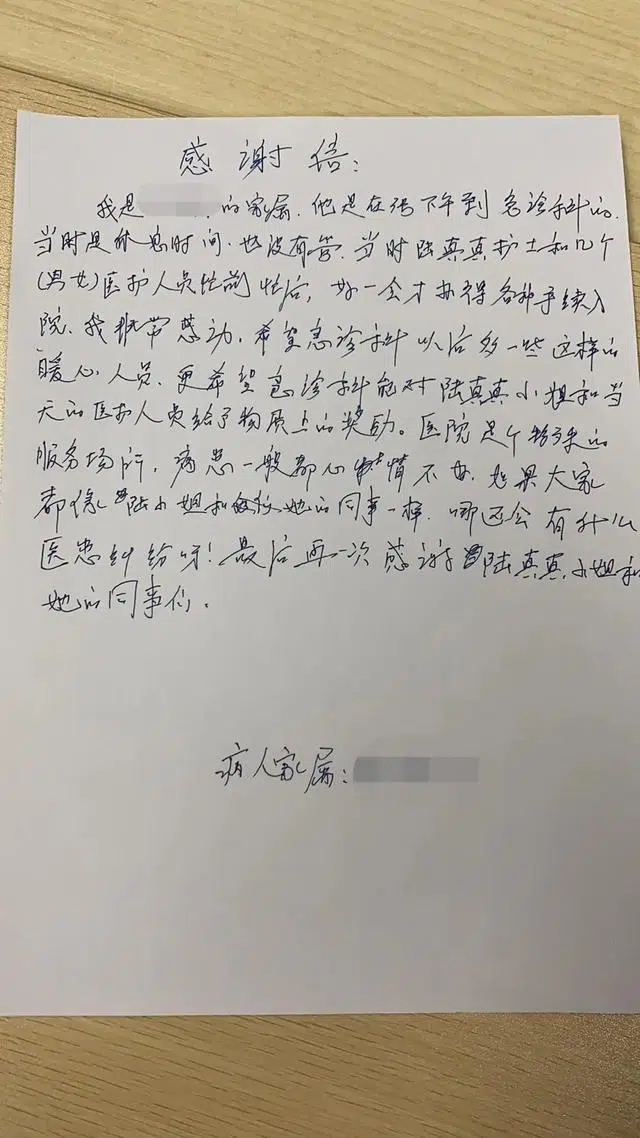 感谢信:
我是 的家属.他是在 下午到急诊科的.
当时是休息时间.也没有管.当时陆真真护士和几个
(男女)医护人员忙前忙后,好一会才办得各种手续入
院.我非常感动.希望急诊科以后多一些这样的
暖心人员.更希望急诊科能对陆真真小姐和当
天的医护人员给予物质上的奖励。医院是个特殊的
服务场所,病患一般都心情不好.如果大家
都像陆小姐和她的同事一样.哪还会有什么
医患纠纷呀!最后再一次感谢陆真真小姐和
她的同事们.
病人家属: